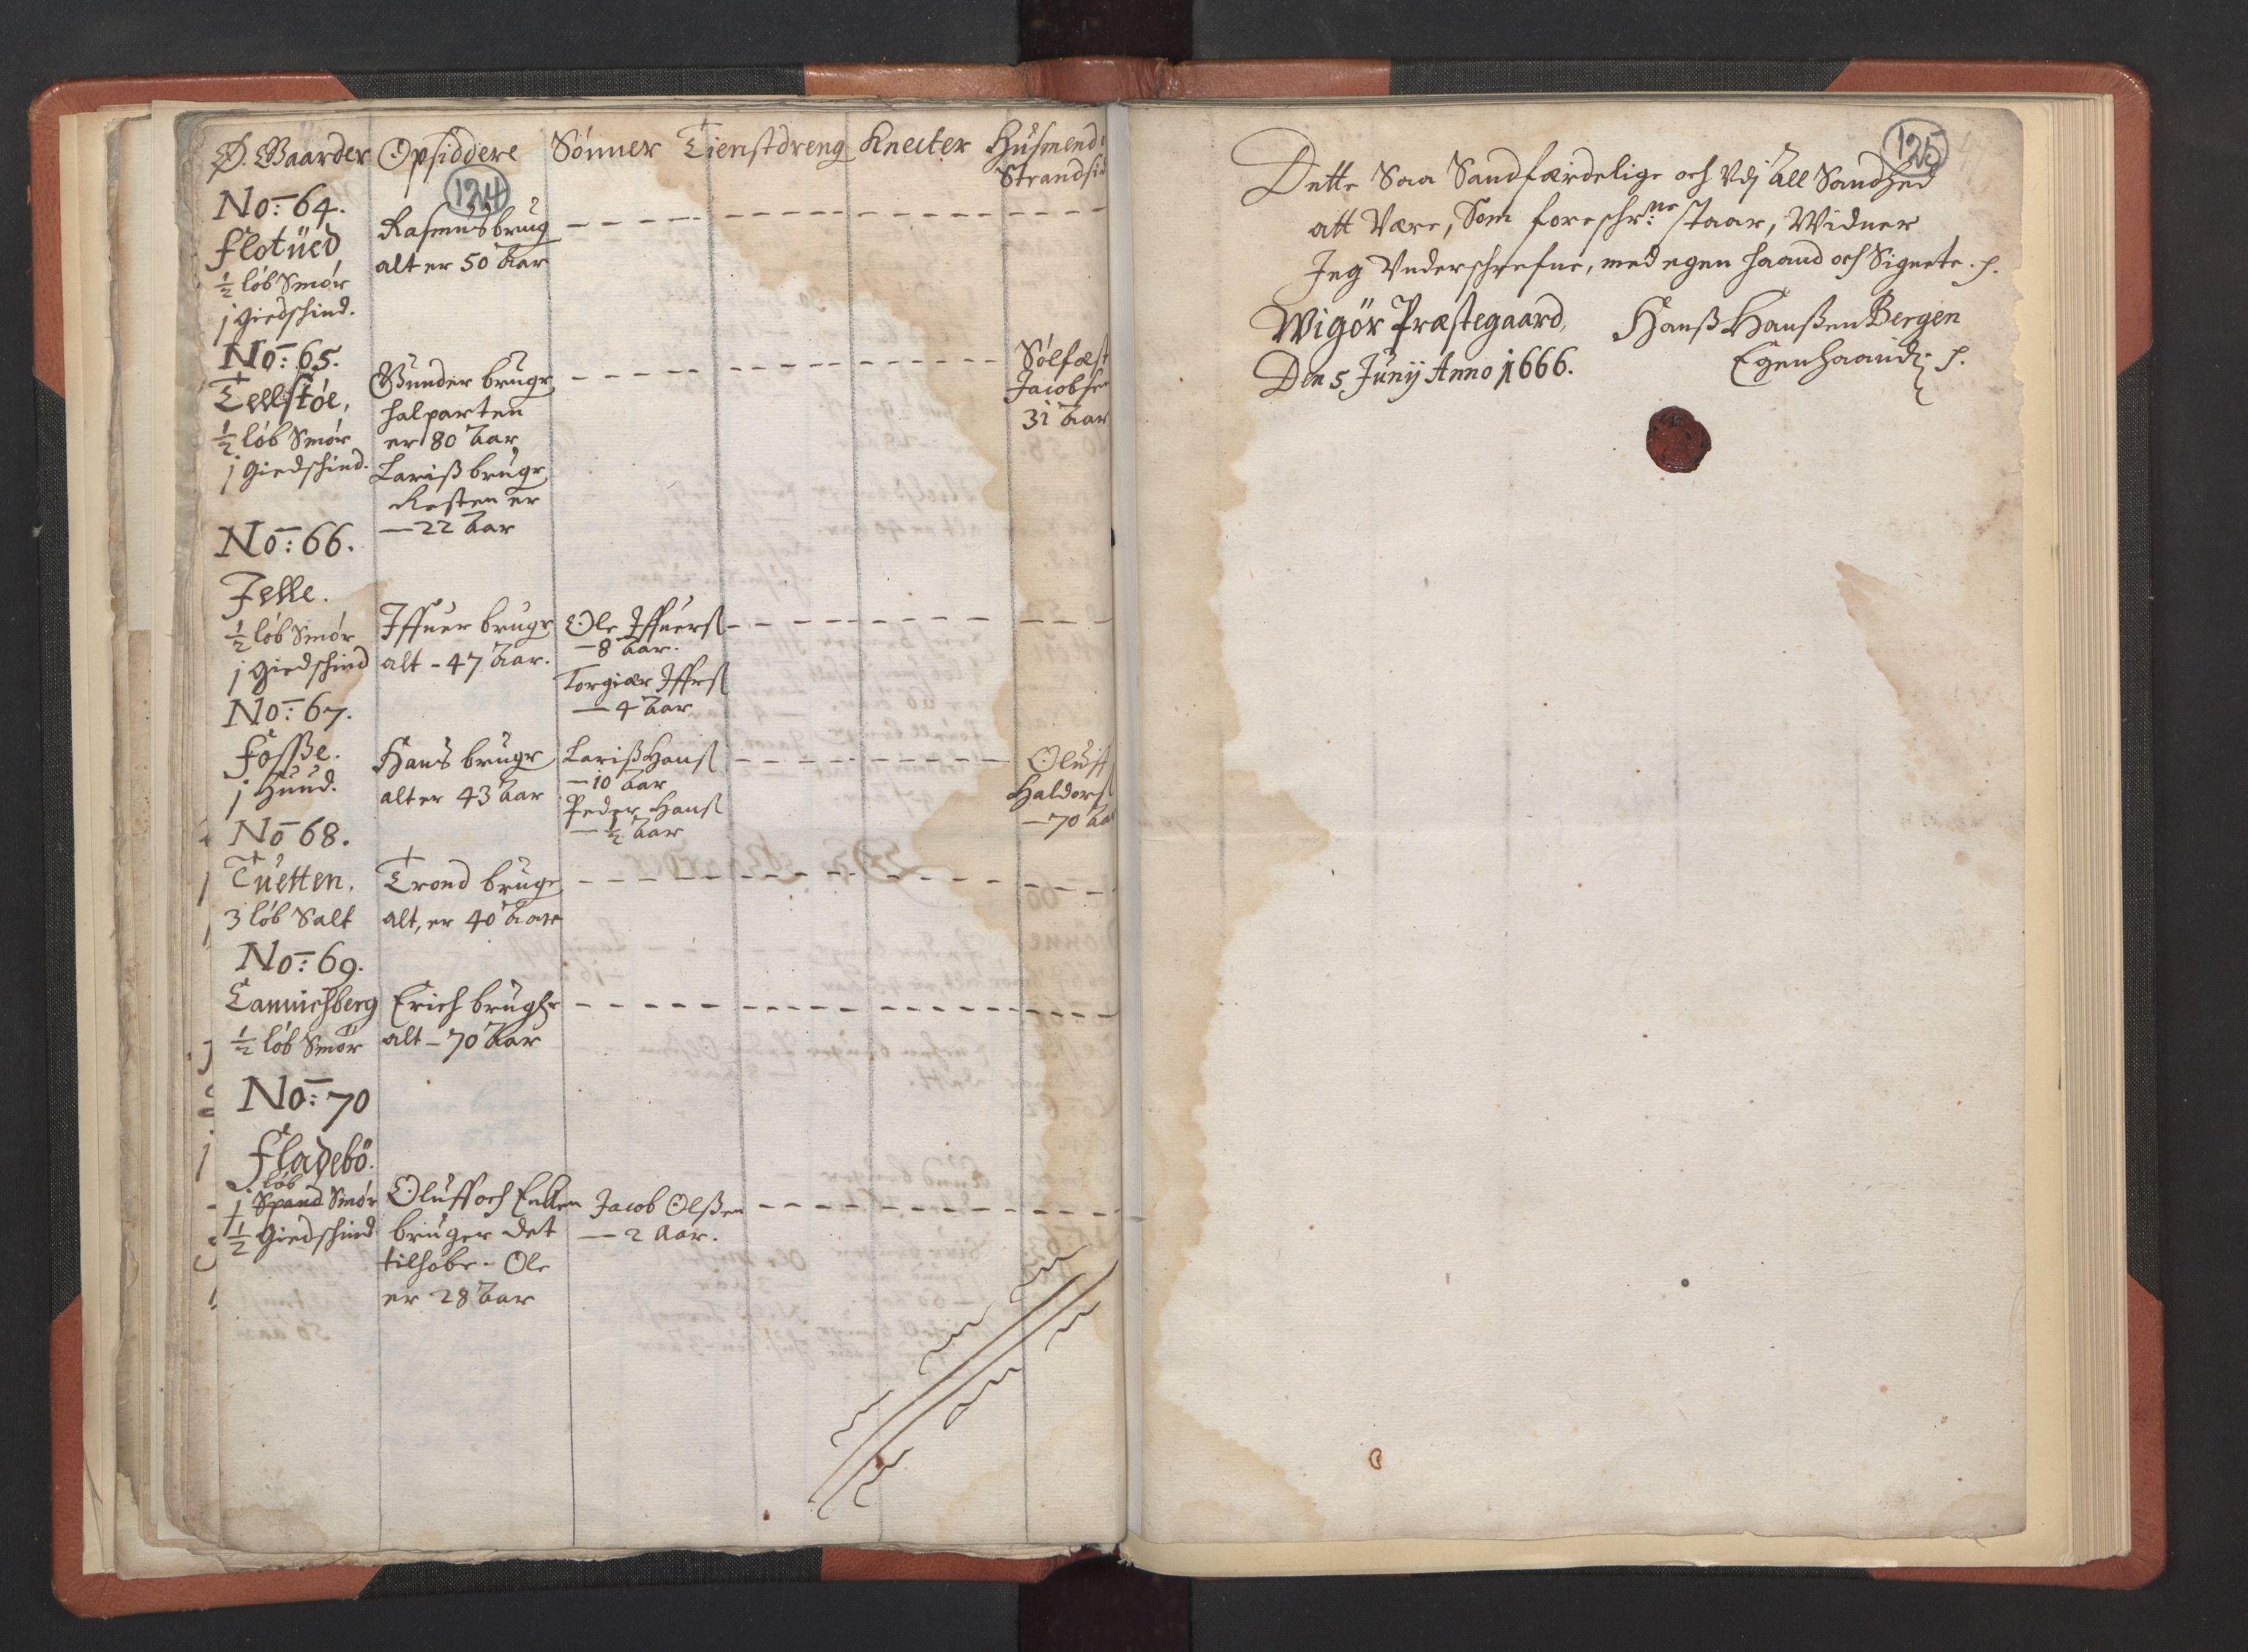 Ø. Gaarder Opsiddere Sönner Tienistdreng Knecter Husmend
Strandsid
124
No: 64.
Flotued
½ löb Smör
j giedschind.
Rasmus brug
alt er 50 aar
No: 65.
Tellstöe,
½ löb Smör
j giedschind.
Gunder brugr
halparten
er 80 aar
Lariß brugr
Resten er
— 22 aar
Sölfæst
Jacobsen
31 aar
No: 66.
Jelle.
½ löb Smör
j giedschind
Iffuer brugr
alt - 47 aar.
Ole Iffuers
— 8 aar.
Torgier Iffrs
— 4 aar
No: 67.
Fosße.
j Hund.
Hans brugr
alt er 43 aar
Lariß Hans
— 10 aar
Peder Hans
— ½ aar
Oluff
Haldors
— 70 aa
No 68.
Tuetten.
3 löb Salt
Trond bruge
alt, er 40 aar
No: 69.
Lannichberg
½ löb Smör
Erich brugh
alt - 70 aar
No: 70
Fladebö.
löb
j Spand Smör
½ giedschind
Oluff och Enken
bruger det
tilhobe - Ole
er 28 aar
Jacob Olßen
— 2 aar.
125
Dette Saa Sandfærdelige och Udj all Sandhed
att Være, Som foreschrne staar, Widner
Jeg Underschrefne, med egen haand och Signete.
Wigör Præstegaard,
Den 5 Junij Anno 1666.
Hanß Hanßen Bergen
Egenhaand